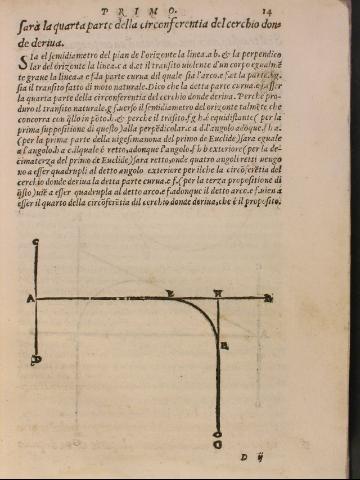 PRIMO. 14
sarà la quarta parte della circonferentia del cerchio don=
de deriua.
SIa el semidiametro del pian de l'orizonte la linea .a b. & la perpendico
lar del orizonte la linea .c a d. et il transito uiolente d'un corpo egualmẽ
te graue la linea .a e f. la parte curua dil quale sia l'arco .e f. et la parte .b g.
sia il transito fatto di moto naturale. Dico che la detta parte curua .e f. esser
la quarta parte della circonferentia del cerchio donde deriua. Perche pro=
duro il transito naturale .g f. uerso il semidiametro del orizonte talmẽte che
concorra con q̃llo in põto .h. & perche il trãsito .f g h. è equidistante (per la
prima suppositione di questo) alla perpẽdicolar .c a d. l'angolo adõque .f h a.
(per la prima parte della uigesimanona del primo de Euclide) sara eguale
a l'angolo .h a c. ilquale è retto, adonque l'angolo .f h b exteriore (per la de=
cimaterza del primo de Euclide) sara retto, onde quatro angoli retti uengo
no a esser quadrupli al detto angolo exteriore per ilche la circõferẽtia del
cerchio donde deriua la detta parte curua .e f. (per la terza propositione di
q̃sto) uiẽ a esser quadrupla al detto arco .e f. adonque il detto arco .e f. uien a
esser il quarto della circõferẽtia dil cerchio donde deriua, che è il proposito.
C
A E H B
D
G
D ij